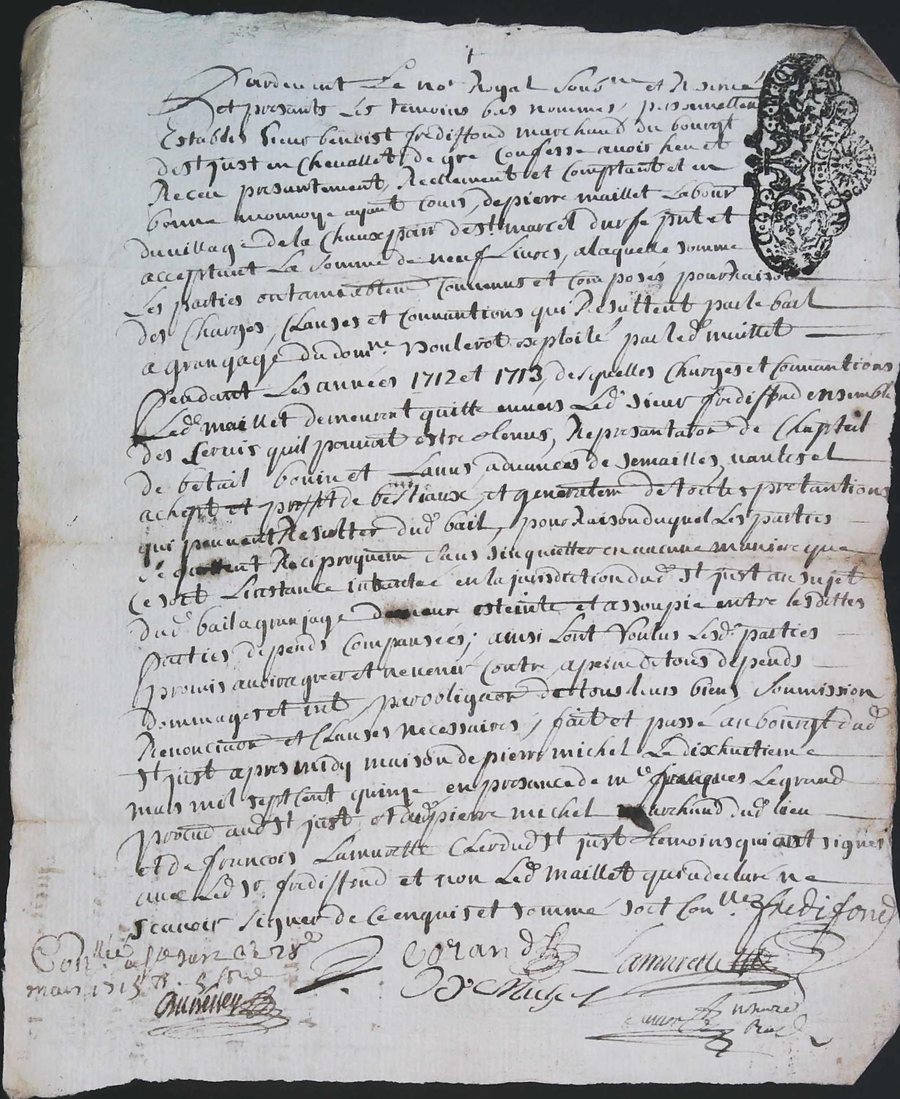 Pardevant Le no.re Royal Sous.ne et Reservé
et presants Les temoins bas nommés, personnellem
Establis Sieur benoist fredifond marchand du bourgt
de st just en Chevallet, de gre Confesse avoir heu et
Receu presantement, Reellement et Comptant et en
bonne monnoye ayant Cours, de pierre maillet Labour
du village de la Chaux parr de st marcel durfe pnt et
acceptant La somme de neuf Livres, a laquelle somme
Les parties ont amiablem Convenus et Composés pour Raison
des Charges, Clauses et Conventions qui Resultent par le bail
a grangage du dom.ne Noulerot exploité par led maillet
Pendant Les années 1712 et 1713, desquelles Charges et Conventions
Led maillet demeurent quitte envers Led sieur fredifond ensemble
des servis quil pouvoit estre tenus, Represantaon de Chapteil
de betail bovin et Lanus, advances de semailles, nantes et
achept et profit de bestiaux, et generalem de toutes pretantions
qui peuvent Resulter dud bail, pour Raison duquel Les parties
se quittent Reciproquem sans sinquietter en aucune maniere que
Ce soit Linstance intantée en la jurisdiction dud st just au sujet
dud bail a granjage demeure esteinte et assoupie entre lesdittes
Parties, depends Compansées; ainsi Lont Voulus Lesd parties
promis avoir agreer et ne venir Contre, a peine de tous depends
Dommages et int, par obligaon de tous leurs biens, Soumission
Renonciaon et Clauses necessaires; fait et passé au bourgt dud
st just apres midy maison de pierre michel Le dixhuitieme
mars mil sept Cent quinze en presance de me jacques Legrand
proud aud st just, et dud pierre michel marchand dud lieu
et de francois Lamurette Clerc dud st just temoins qui ont signés
avec Led sr fredifond et non Led maillet qui a declaré ne
scavoir signer de Ce enquis et sommé soit Con.llé fredifond
Con.llé a st just Ce 28e
mars 1715 R
Lamurette
P Michel
notaire
Royal